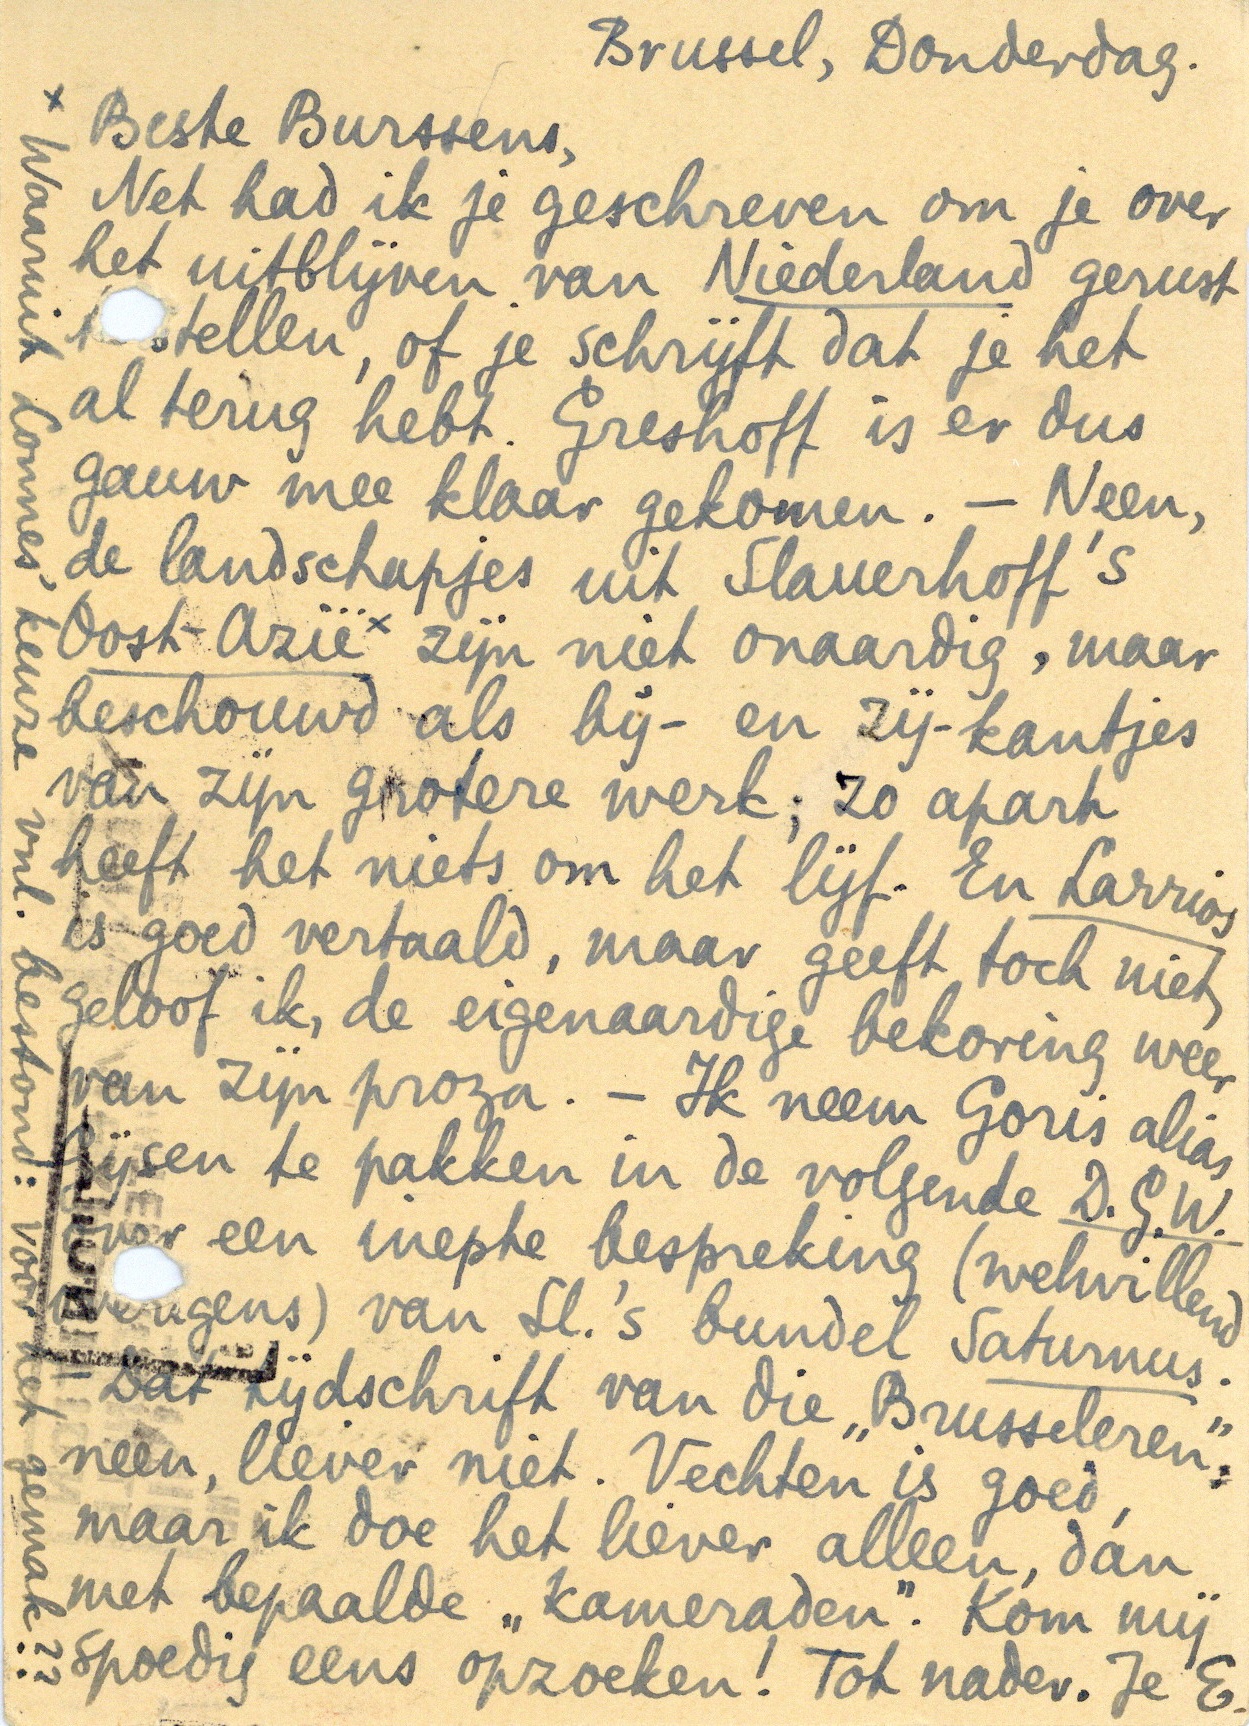 Brussel, Donderdag.
Beste Burssens,
Net had ik je geschreven om je over
het uitblijven van Niederland gerust
stellen, of je schrijft dat je het
al terug hebt. Greshoff is er dus
gauw mee klaar gekomen. — Neen,
de landschapjes uit Slauerhoff's
Oost-Azië x zijn niet onaardig, maar
beschouwd als bij- en zij-kantjes
van zijn grotere werk; zo apart
heeft het niets om het lijf. En Larrios
is goed vertaald, maar geeft toch niet,
geloof ik, de eigenaardige bekoring weer
van zijn proza. — Ik neem Goris alias
Rijsen te pakken in de volgende D.G.W.
over een inepte bespreking (welwillend
overigens) van Sl.'s bundel Saturnus.
Dat tijdschrift van die „Brusseleren";
neen, liever niet. Vechten is goed,
maar ik doe het liever alleen, dán
met bepaalde „kameraden". Kom mij
spoedig eens opzoeken! Tot nader. Je E.
x Waaruit Lonnes' keuze vnl. bestond: voor het gemak??